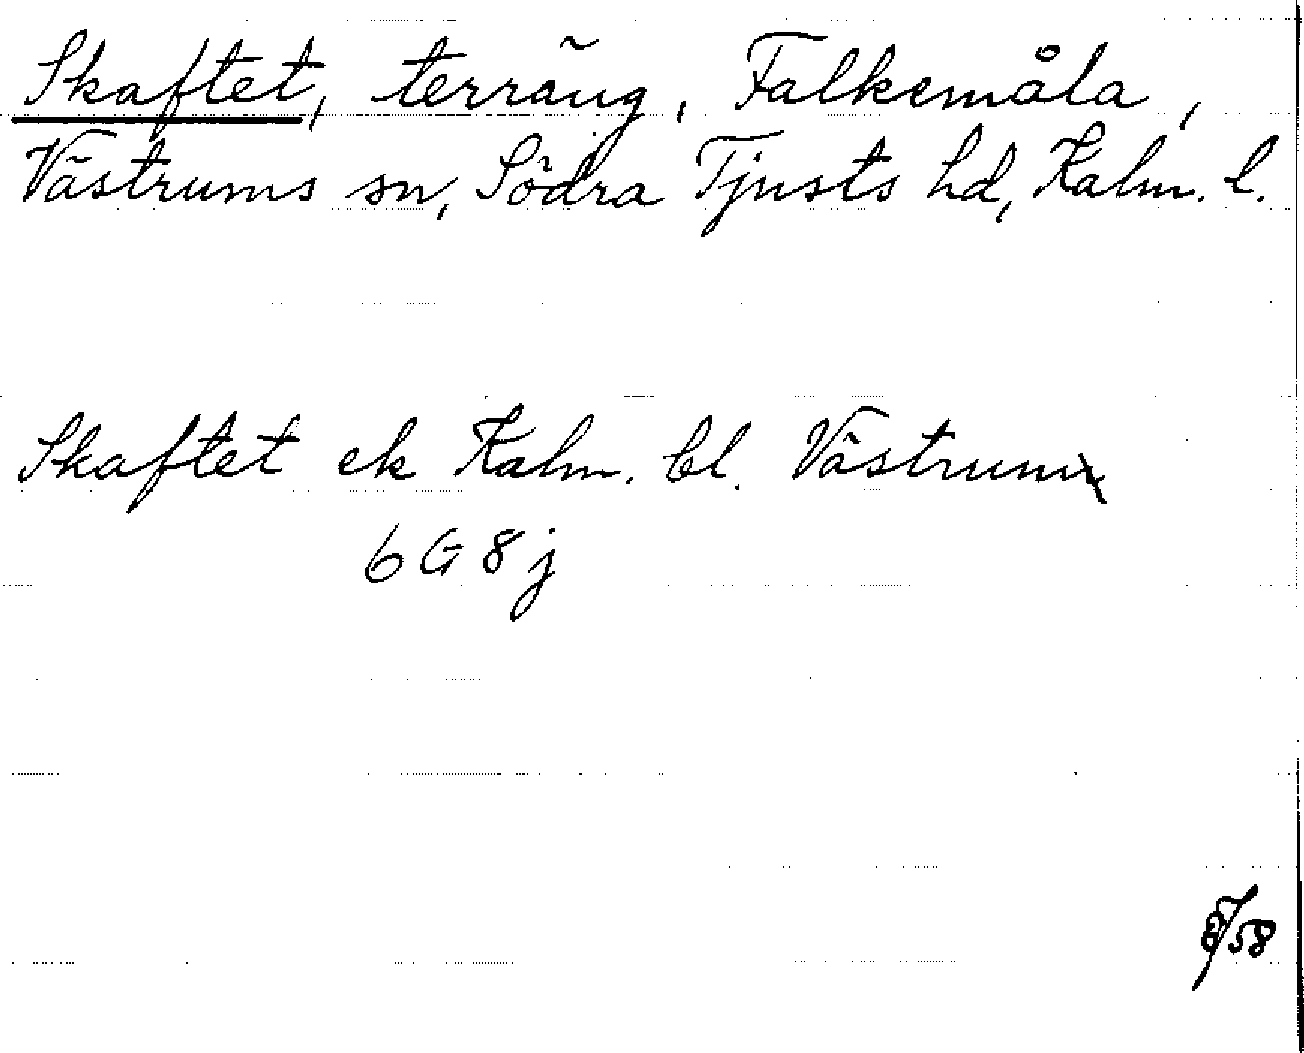 Skaftet, terräng, Falkemåla,
Västrums sn, Södra Tjusts hd, Kalm. l.
Skaftet ek Kalm. bl. Västrum
6 G 8 j
8/58